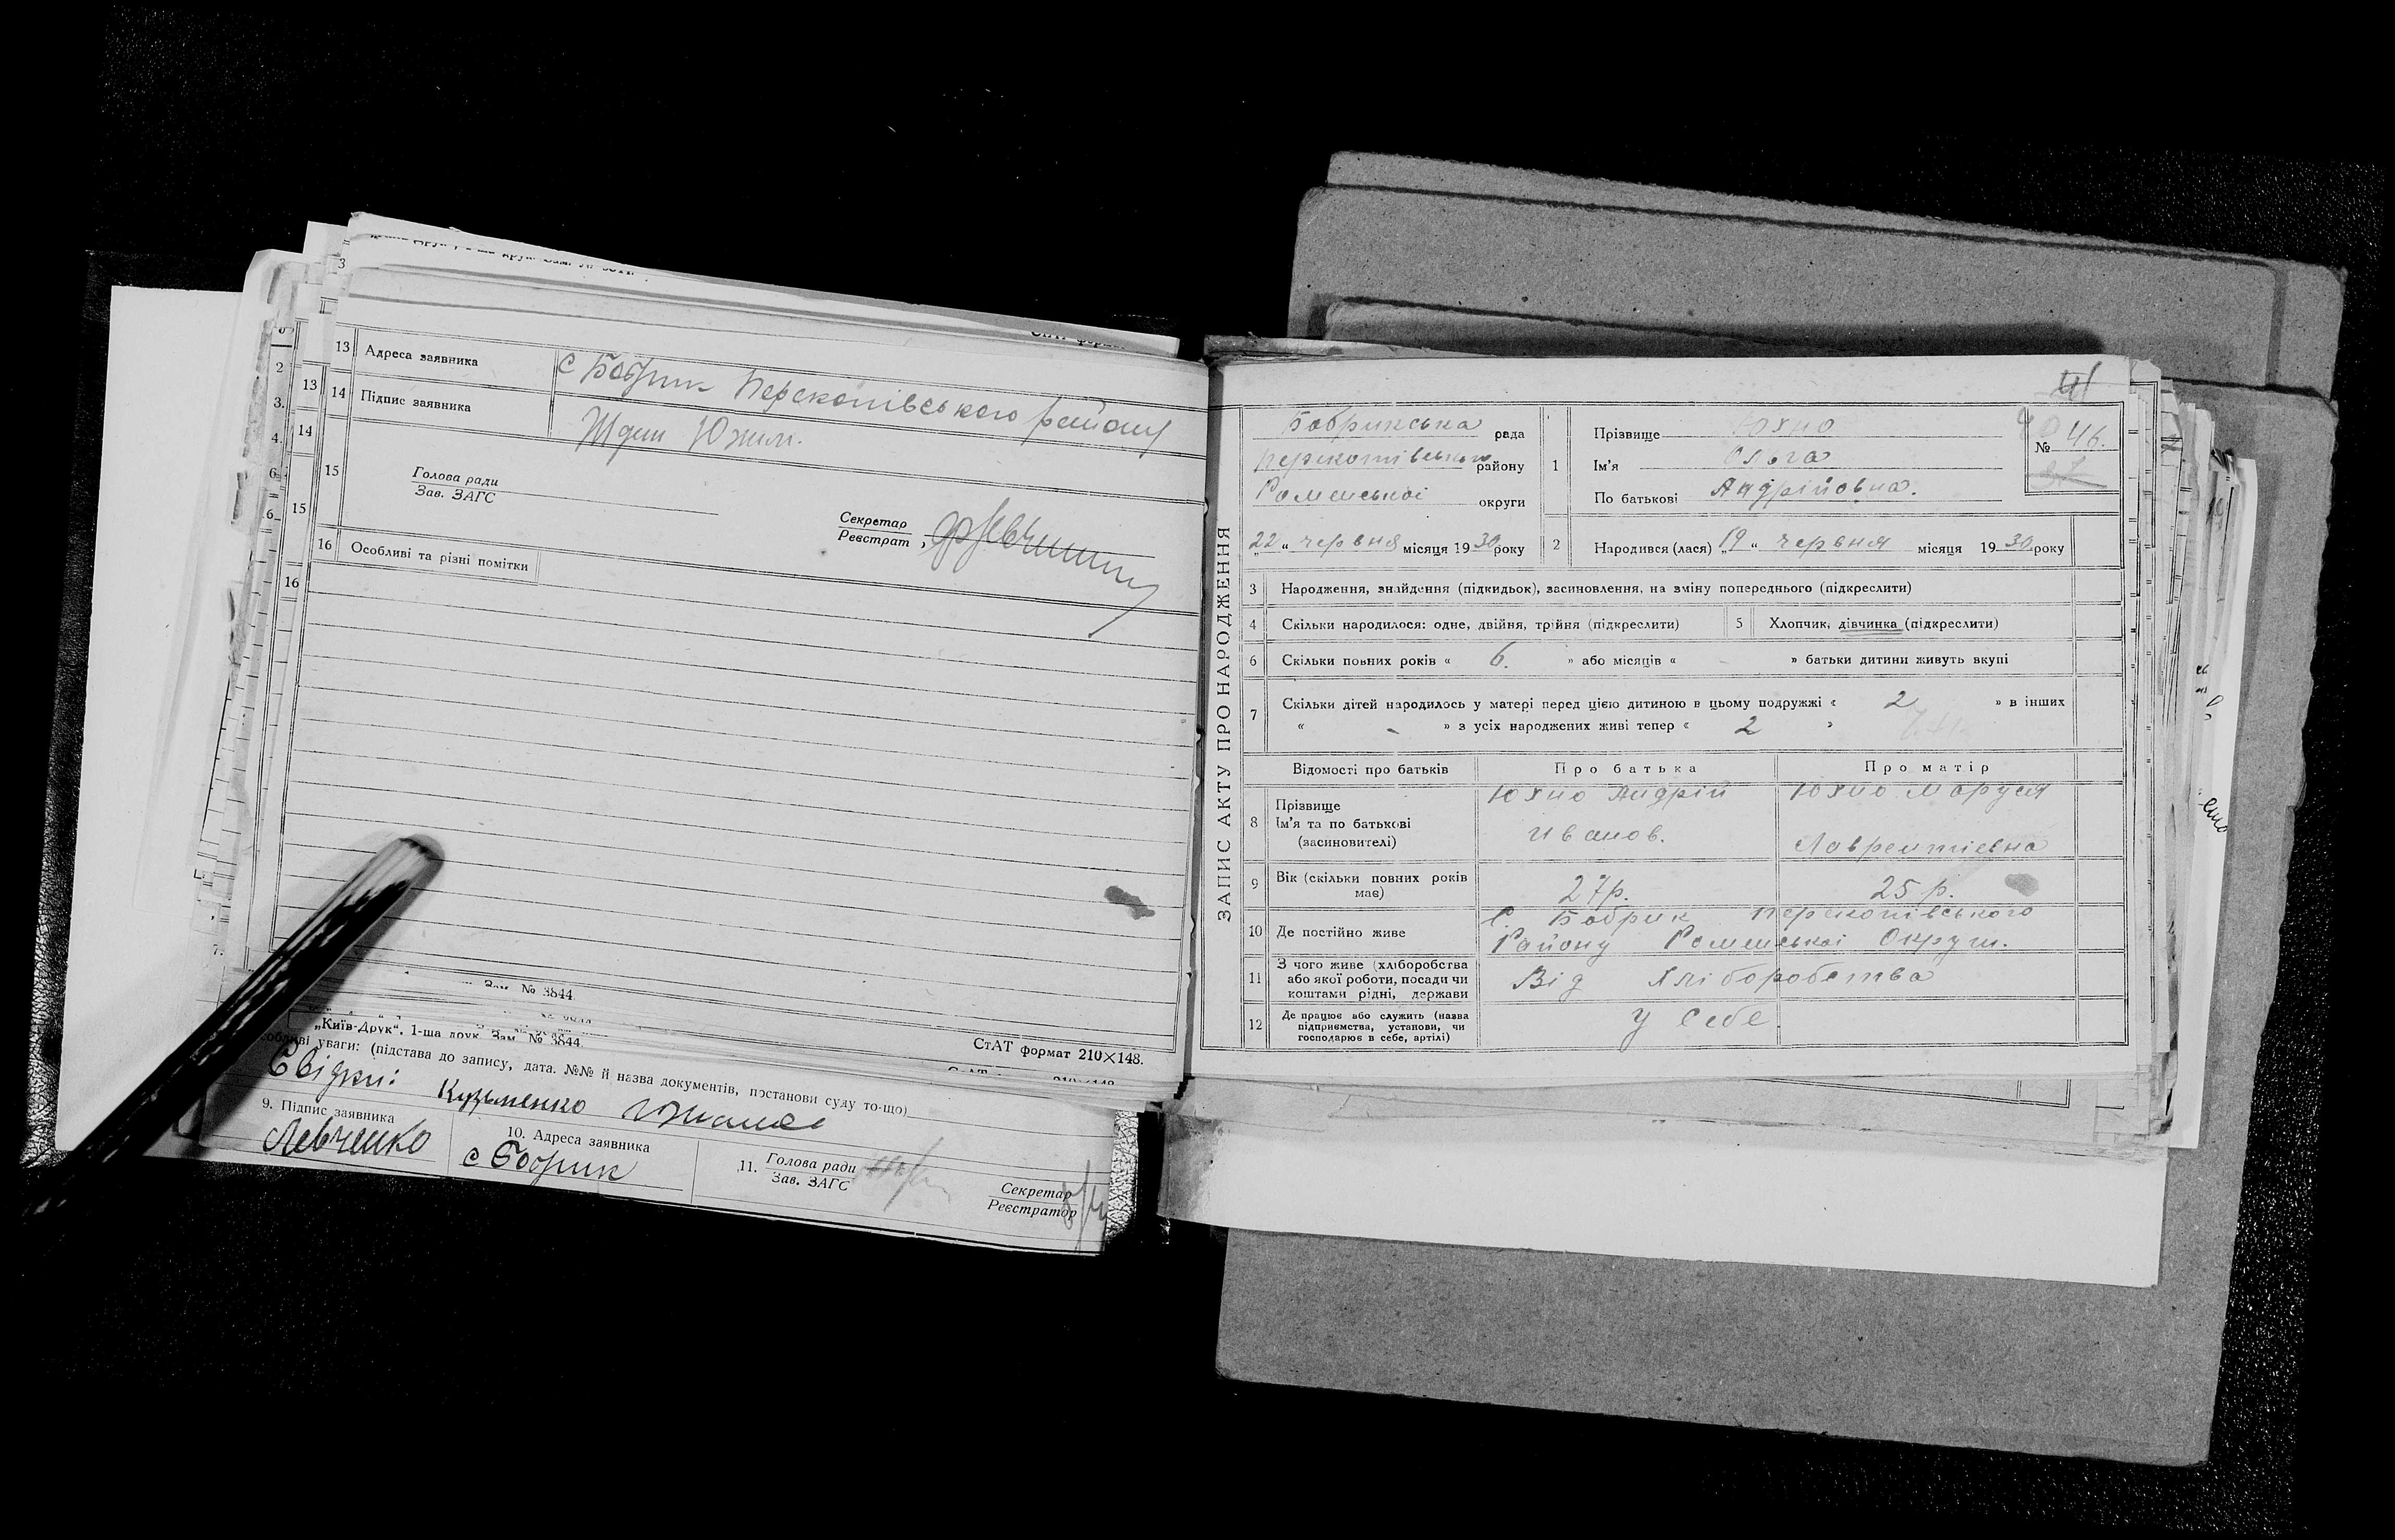 13 Адреса заявника с Бобрик Перекопівського району
14 Підпис заявника
15 Голова ради
Зав. ЗАГС
Секретар
Реєстрат
16 Особливі та різні помітки
Зам. № 3844.
„Київ-Друк“. 1-ша друк. Зам. № 3844.
СтАТ формат 210×148.
уваги: (підстава до запису, дата. №№ й назва документів, постанови суду то-що)
Свідки: Кузьменко
9. Підпис заявника
Левченко
10. Адреса заявника
с Бобрик
11. Голова ради
Зав. ЗАГС
Секретар
Реєстратор
ЗАПИС АКТУ ПРО НАРОДЖЕННЯ
Бобринська рада
Перекопівського району
Роменської округи
22 “ червня місяця 1930 року
1 Прізвище Юхно
Ім'я Ольга
По батькові Андрійовна.
№ 46.
2 Народився (лася) „19 “ червня місяця 1930 року
3 Народження, знайдення (підкидьок), засиновлення, на зміну попереднього (підкреслити)
4 Скільки народилося: одне, двійня, трійня (підкреслити) 5 Хлопчик, дівчинка (підкреслити)
6 Скільки повних років « 6. » або місяців « - » батьки дитини живуть вкупі
7 Скільки дітей народилось у матері перед цією дитиною в цьому подружжі « 2 » в інших
« - » з усіх народжених живі тепер « 2 »
Відомості про батьків Про батька Про матір
8 Прізвище
Ім'я та по батькові
(засиновителі)
Юхно Андрій
Иванов.
Юхно Маруся
Лаврентіевна
9 Вік (скільки повних років має) 27р. 25 р.
10 Де постійно живе С. Бобрик Перекопівського
Району Роменської Округи.
11 З чого живе (хліборобства
або якої роботи, посади чи
коштами рідні, держави
Від Хліборобства
12 Де працює або служить (назва
підприємства, установи, чи
господарює в себе, артілі)
У себе